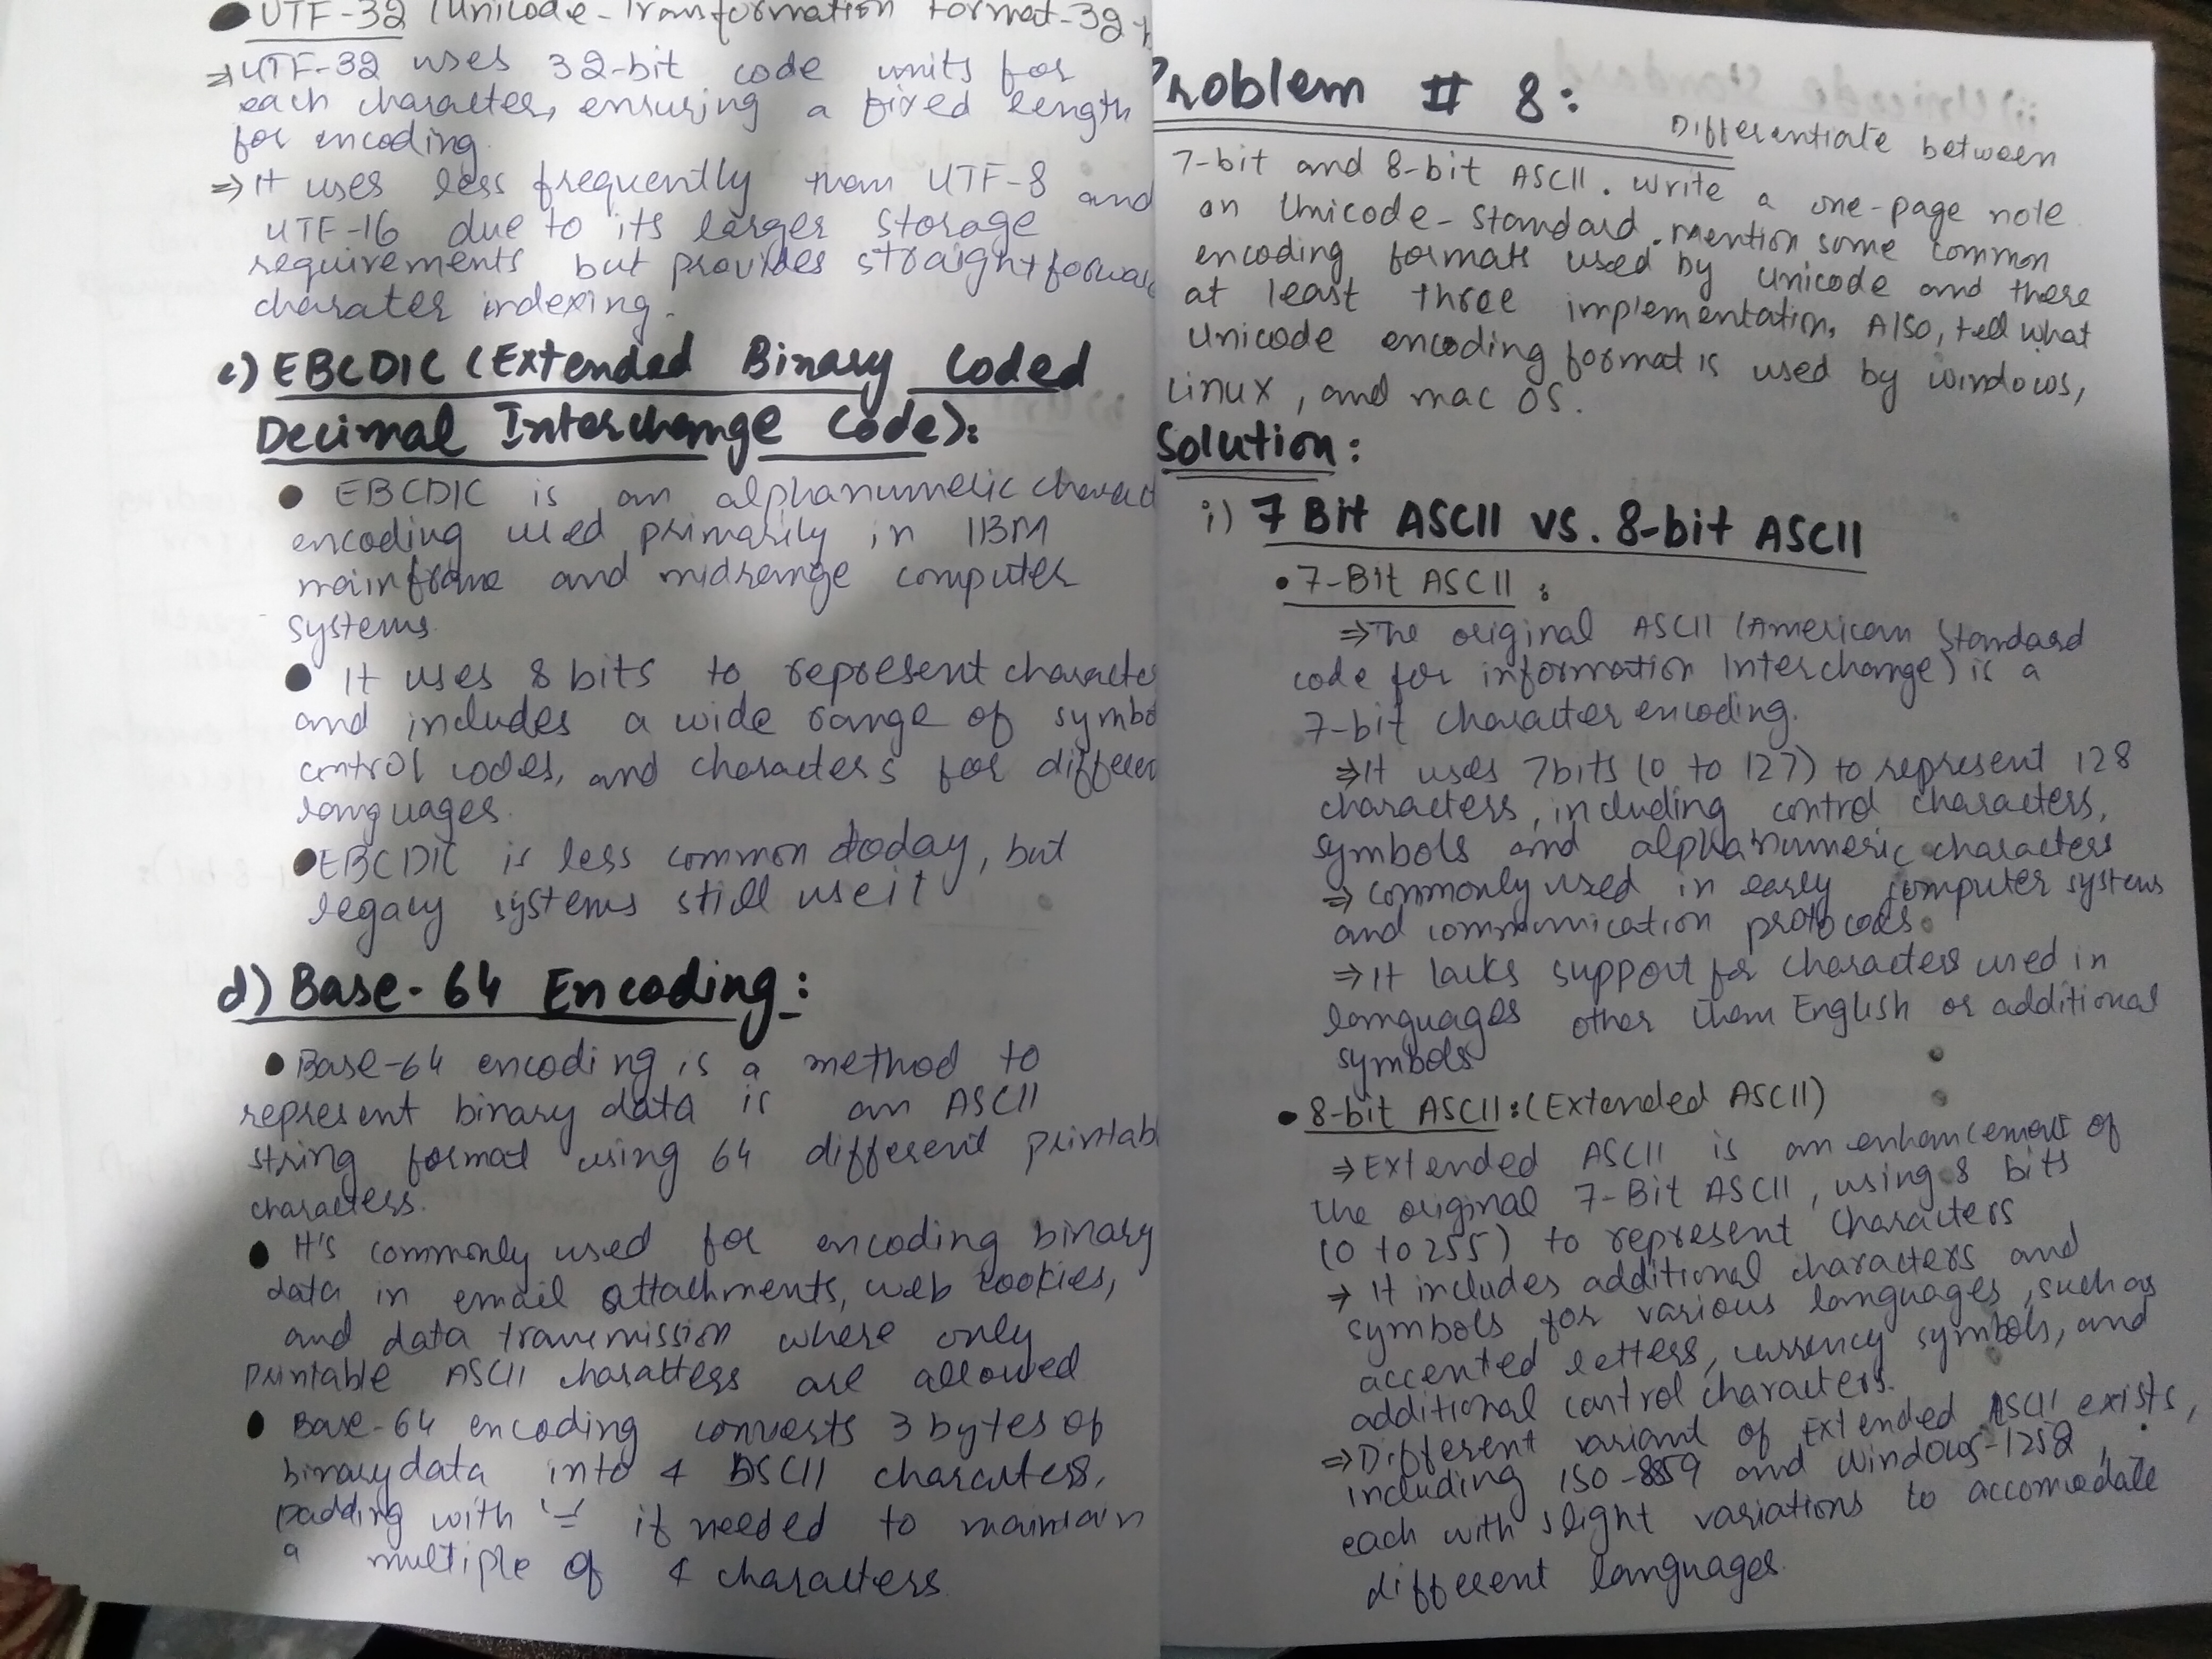 • UTF-32 (Unicode-Transformation Format-32-
⇒ UTF-32 uses 32-bit code units for
each character, ensuring a fixed length
for encoding.
⇒ It uses less frequently than UTF-8 and
UTF-16 due to its larger storage
requirements but provides straightforwar
charater indexing.
c) EBCDIC (Extended Binary Coded
Decimal Interchange Code):
• EBCDIC is an alphanumeric charact
encoding used primarily in IBM
mainframe and midrange computer
systems.
• It uses 8 bits to represent characte
and includes a wide range of symbo
control codes, and characters for differen
languages.
• EBCDIC is less common today, but
legacy systems still use it
d) Base-64 Encoding:
• Base-64 encoding is a method to
represent binary data is an ASCII
string format using 64 different printab
characters.
• It's commonly used for encoding binary
data in email attachments, web cookies,
and data transmission where only
printable ASCII charatters are allowed
• Base-64 encoding converts 3 bytes of
binary data into 4 ASCII characters,
padding with '=' if needed to maintain
a multiple of 4 characters.
Problem # 8:
Differentiate between
7-bit and 8-bit ASCII. Write a one-page note
on Unicode-Standard. Mention some common
encoding formats used by Unicode and there
at least three implementation, Also, tell what
Unicode encoding format is used by windows,
Linux, and mac OS.
Solution:
i) 7 Bit ASCII VS. 8-bit ASCII
• 7-Bit ASCII:
⇒ The original ASCII (American Standard
code for information Interchange) is a
7-bit character encoding.
⇒ It uses 7bits (0 to 127) to represent 128
characters, including control characters,
symbols and alphanumeric characters
⇒ commonly used in early computer systems
and communication protocols.
⇒ It lacks support for characters used in
languages other than English or additional
symbols
• 8-bit ASCII: (Extended ASCII)
⇒ Extended ASCII is an enhancement of
the original 7-Bit ASCII, using 8 bits
(0 to 255) to represent characters
⇒ It includes additional characters and
symbols for various languages, such as
accented letters, currency symbols, and
additional control characters.
⇒ Different variant of Extended ASCII exists,
including ISO-8859 and Windows-1252,
each with slight variations to accomodate
different languages.